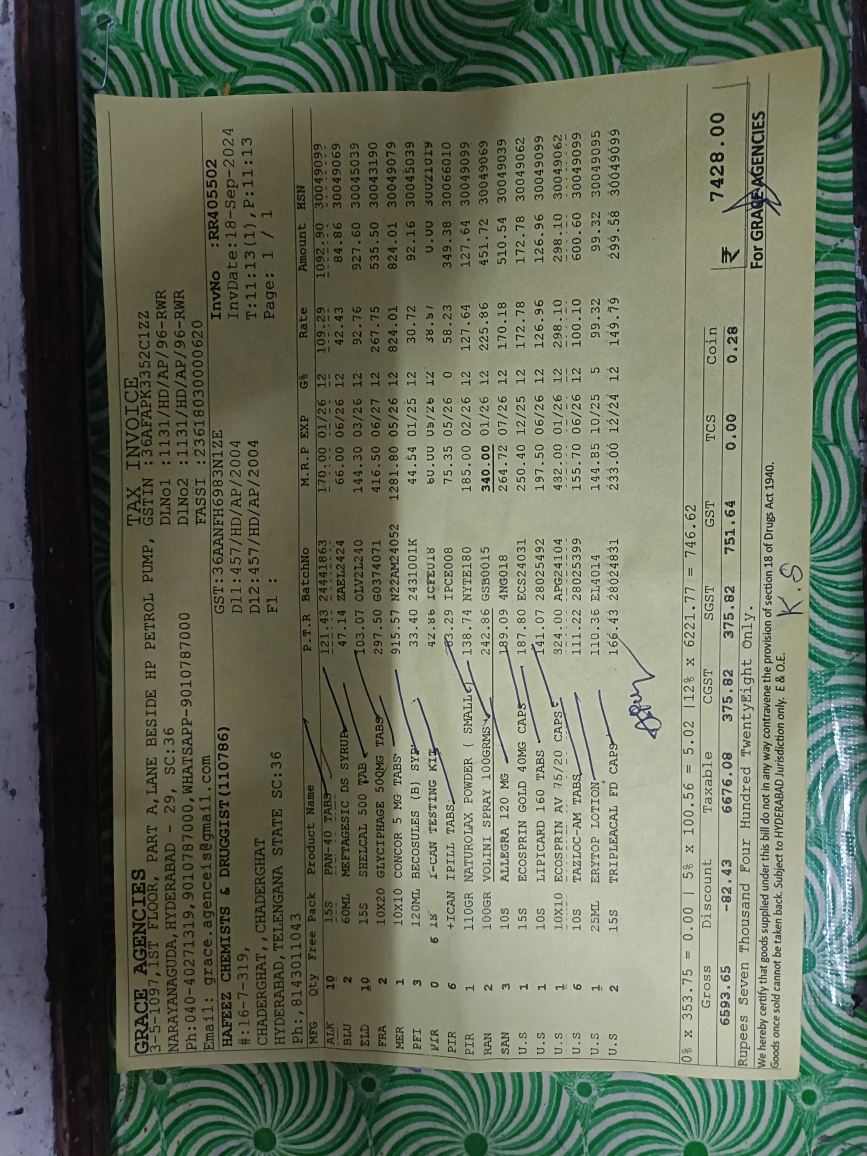 GRACE AGENCIES
TAX INVOICE
3-5-1097,1ST FLOOR, PART A,LANE BESIDE HP PETROL PUMP,
NARAYANAGUDA,HYDERABAD - 29, SC:36
Ph:040-40271319,9010787000,WHATSAPP-9010787000
Email: grace.agenceis@gmail.com
GSTIN :36AFAPK3352C1ZZ
DLNo1 :1131/HD/AP/96-RWR
DlNo2 :1131/HD/AP/96-RWR
FASSI :23618030000620
HAFEEZ CHEMISTS & DRUGGIST(110786)
#:16-7-319,
CHADERGHAT,,CHADERGHAT
HYDERABAD,TELENGANA STATE SC:36
Ph:,8143011043
GST:36AANFH6983N1ZE
Dl1:457/HD/AP/2004
Dl2:457/HD/AP/2004
Fl :
InvNo :RR405502
InvDate:18-Sep-2024
T:11:13(1),P:11:13
Page: 1 / 1
MFG Qty Free Pack Product Name P.T.R BatchNo M.R.P EXP G% Rate Amount HSN
ALK 10 15S PAN-40 TABS 121.43 24441863 170.00 01/26 12 109.29 1092.90 30049099
BLU 2 60ML MEFTAGESIC DS SYRUP 47.14 ZAEL2424 66.00 06/26 12 42.43 84.86 30049069
ELD 10 15S SHELCAL 500 TAB 103.07 OLV2L240 144.30 03/26 12 92.76 927.60 30045039
FRA 2 10X20 GLYCIPHAGE 500MG TABS 297.50 G0374071 416.50 06/27 12 267.75 535.50 30043190
MER 1 10X10 CONCOR 5 MG TABS 915.57 N22AM24052 1281.80 05/26 12 824.01 824.01 30049079
PFI 3 120ML BECOSULES (B) SYP 33.40 2431001K 44.54 01/25 12 30.72 92.16 30045039
PIR 0 6 1S I-CAN TESTING KIT 42.86 ICFE018 60.00 05/26 12 38.57 0.00 30021019
PIR 6 +ICAN IPILL TABS 63.29 IPCE008 75.35 05/26 0 58.23 349.38 30066010
PIR 1 110GR NATUROLAX POWDER ( SMALL 138.74 NYTE180 185.00 02/26 12 127.64 127.64 30049099
RAN 2 100GR VOLINI SPRAY 100GRMS 242.86 GSB0015 340.00 01/26 12 225.86 451.72 30049069
SAN 3 10S ALLEGRA 120 MG 189.09 4NG018 264.72 07/26 12 170.18 510.54 30049039
U.S 1 15S ECOSPRIN GOLD 40MG CAPS 187.80 ECS24031 250.40 12/25 12 172.78 172.78 30049062
U.S 1 10S LIPICARD 160 TABS 141.07 28025492 197.50 06/26 12 126.96 126.96 30049099
U.S 1 10X10 ECOSPRIN AV 75/20 CAPS 324.00 APG24104 432.00 01/26 12 298.10 298.10 30049062
U.S 6 10S TAZLOC-AM TABS 111.22 28025399 155.70 06/26 12 100.10 600.60 30049099
U.S 1 25ML ERYTOP LOTION 110.36 EL4014 144.85 10/25 5 99.32 99.32 30049095
U.S 2 15S TRIPLEACAL FD CAPS 166.43 28024831 233.00 12/24 12 149.79 299.58 30049099
0% x 353.75 = 0.00 | 5% x 100.56 = 5.02 |12% x 6221.77 = 746.62
Gross Discount Taxable CGST SGST GST TCS Coin
6593.65 -82.43 6676.08 375.82 375.82 751.64 0.00 0.28
₹ 7428.00
Rupees Seven Thousand Four Hundred TwentyEight Only.
We hereby certify that goods supplied under this bill do not in any way contravene the provision of section 18 of Drugs Act 1940.
Goods once sold cannot be taken back. Subject to HYDERABAD Jurisdiction only. E & O.E.
For GRACE AGENCIES
K.S